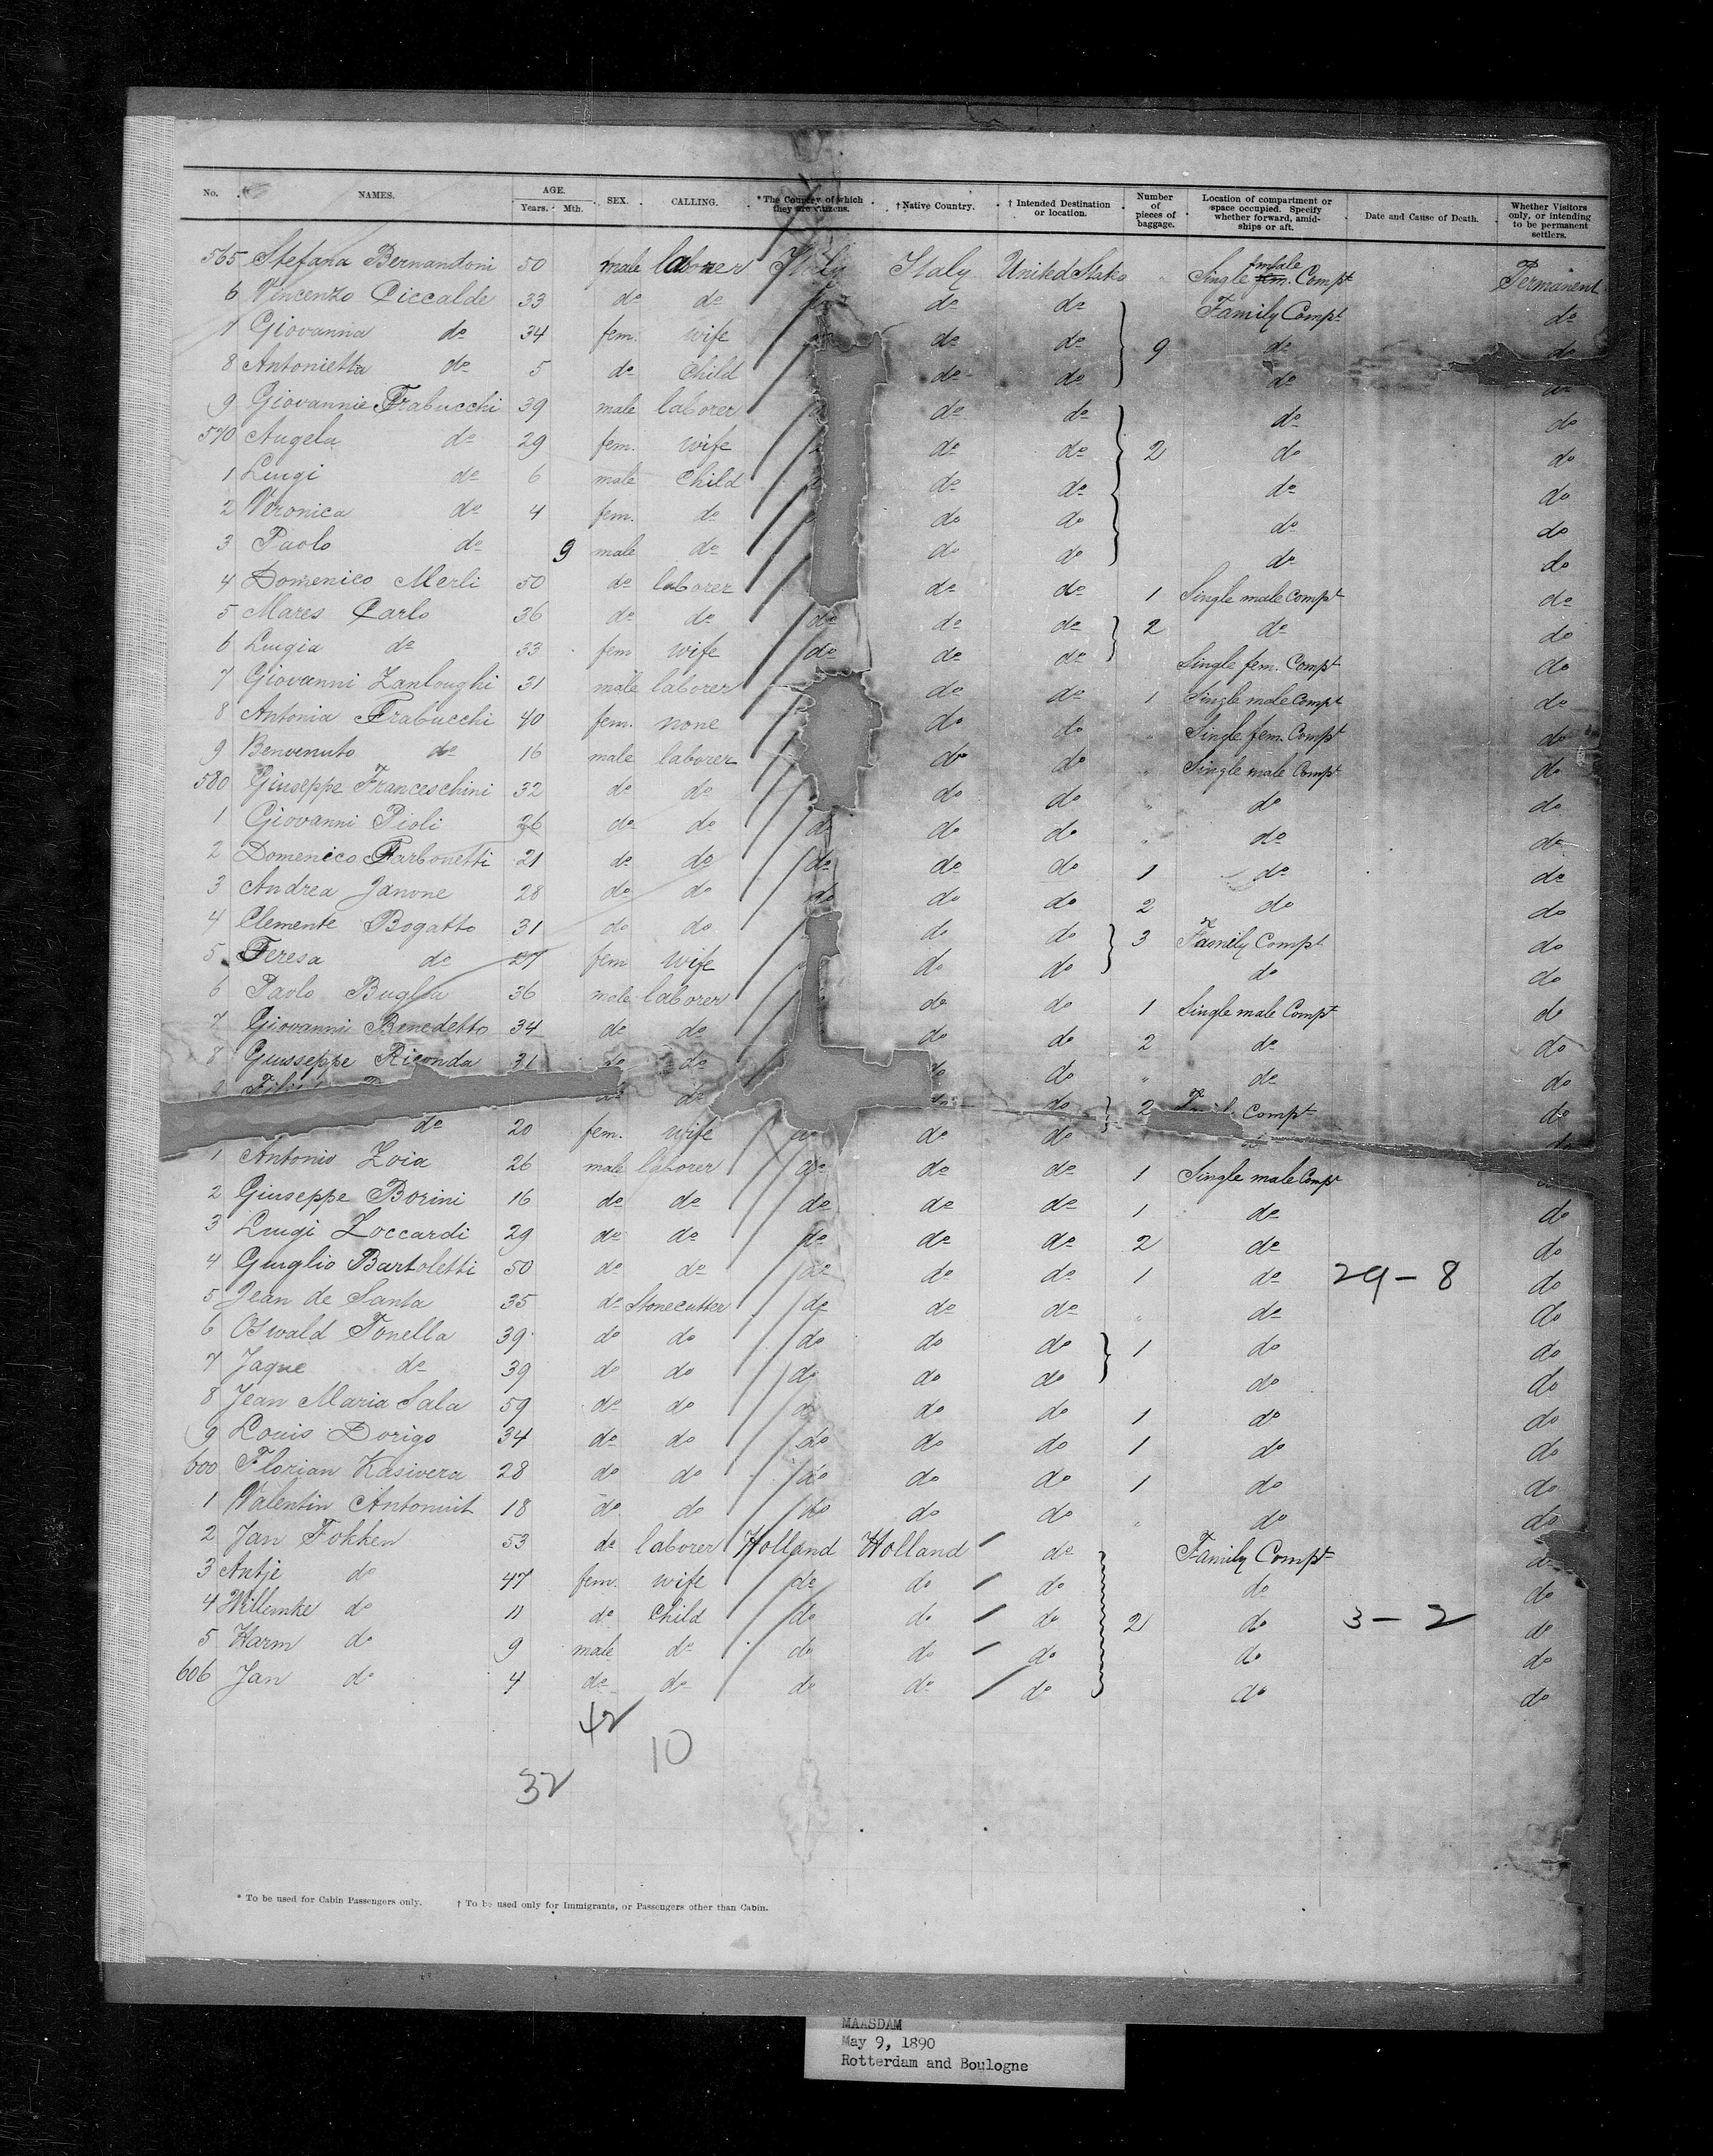 No. NAMES. AGE. Years. Mth. SEX. CALLING. *The Country of which they are citizens. †Native Country. † Intended Destination or location. Number of pieces of baggage. Location of compartment or space occupied. Specify whether forward, amidships or aft. Date and Cause of Death. Whether Visitors only, or intending to be permanent settlers.
565 Stefana Bernandoni 50 male laborer Italy Italy United States " Single male Compt Permanent
6 Vincenzo Ciccalde 33 do do do do Family Compt do
7 Giovanna do 34 fem. wife do do 9 do do
8 Antonietta do 5 do Child do do do do
9 Giovannie Trabucchi 39 male laborer do do do do
570 Angela do 29 fem. wife do do 2 do do
1 Luigi do 6 male Child do do do do
2 Veronica do 4 fem. do do do do do
3 Paolo do 9 male do do do do do
4 Domenico Merli 50 do laborer do do 1 Single male Compt do
5 Mares Carlo 36 do do do do do 2 do do
6 Luigia do 33 fem wife do do do Single fem. Compt do
7 Giovanni Zanloughi 31 male laborer do do 1 Single male Compt do
8 Antonia Trabucchi 40 fem. none do do " Single fem. Compt do
9 Benvenuto do 16 male laborer do do " Single male Compt do
580 Giuseppe Franceschini 32 do do do do " do do
1 Giovanni Pioli 26 do do do do do " do do
2 Domenico Farbonetti 21 do do do do do 1 do do
3 Andrea Janone 28 do do do do do 2 do do
4 Clemente Bogatto 31 do do do do 3 Family Compt do
5 Teresa do 27 fem wife do do do do
6 Paolo Buglia 36 male laborer do do 1 Single male Compt do
7 Giovanni Benedetto 34 do do do do 2 do do
8 Giusseppe Riconda 31 do do do do " do do
do do do 2 Compt do
do 20 fem. wife do do do do
1 Antonio Zoia 26 male laborer do do do 1 Single male Compt
2 Giuseppe Borini 16 do do do do do 1 do do
3 Luigi Zoccardi 29 do do do do do 2 do do
4 Giuglio Bartoletti 50 do do do do do 1 do 29 - 8 do
5 Jean de Santa 35 do Stonecutter do do do " do do
6 Oswald Tonella 39 do do do do do 1 do do
7 Jaque do 39 do do do do do do do
8 Jean Maria Sala 59 do do do do do 1 do do
9 Louis Dorigo 34 do do do do do 1 do do
600 Florian Kasivera 28 do do do do do 1 do do
1 Valentin Antoniut 18 do do do do do " do do
2 Jan Fokken 53 do laborer Holland Holland do Family Compt do
3 Antje do 47 fem. wife do do do do do
4 Willemke do 11 do Child do do do 2 do 3 - 2 do
5 Harm do 9 male do do do do do do
606 Jan do 4 do do do do do do do
42
10
32
* To be used for Cabin Passengers only. † To be used only for Immigrants, or Passengers other than Cabin.
MAASDAM
May 9, 1890
Rotterdam and Boulogne